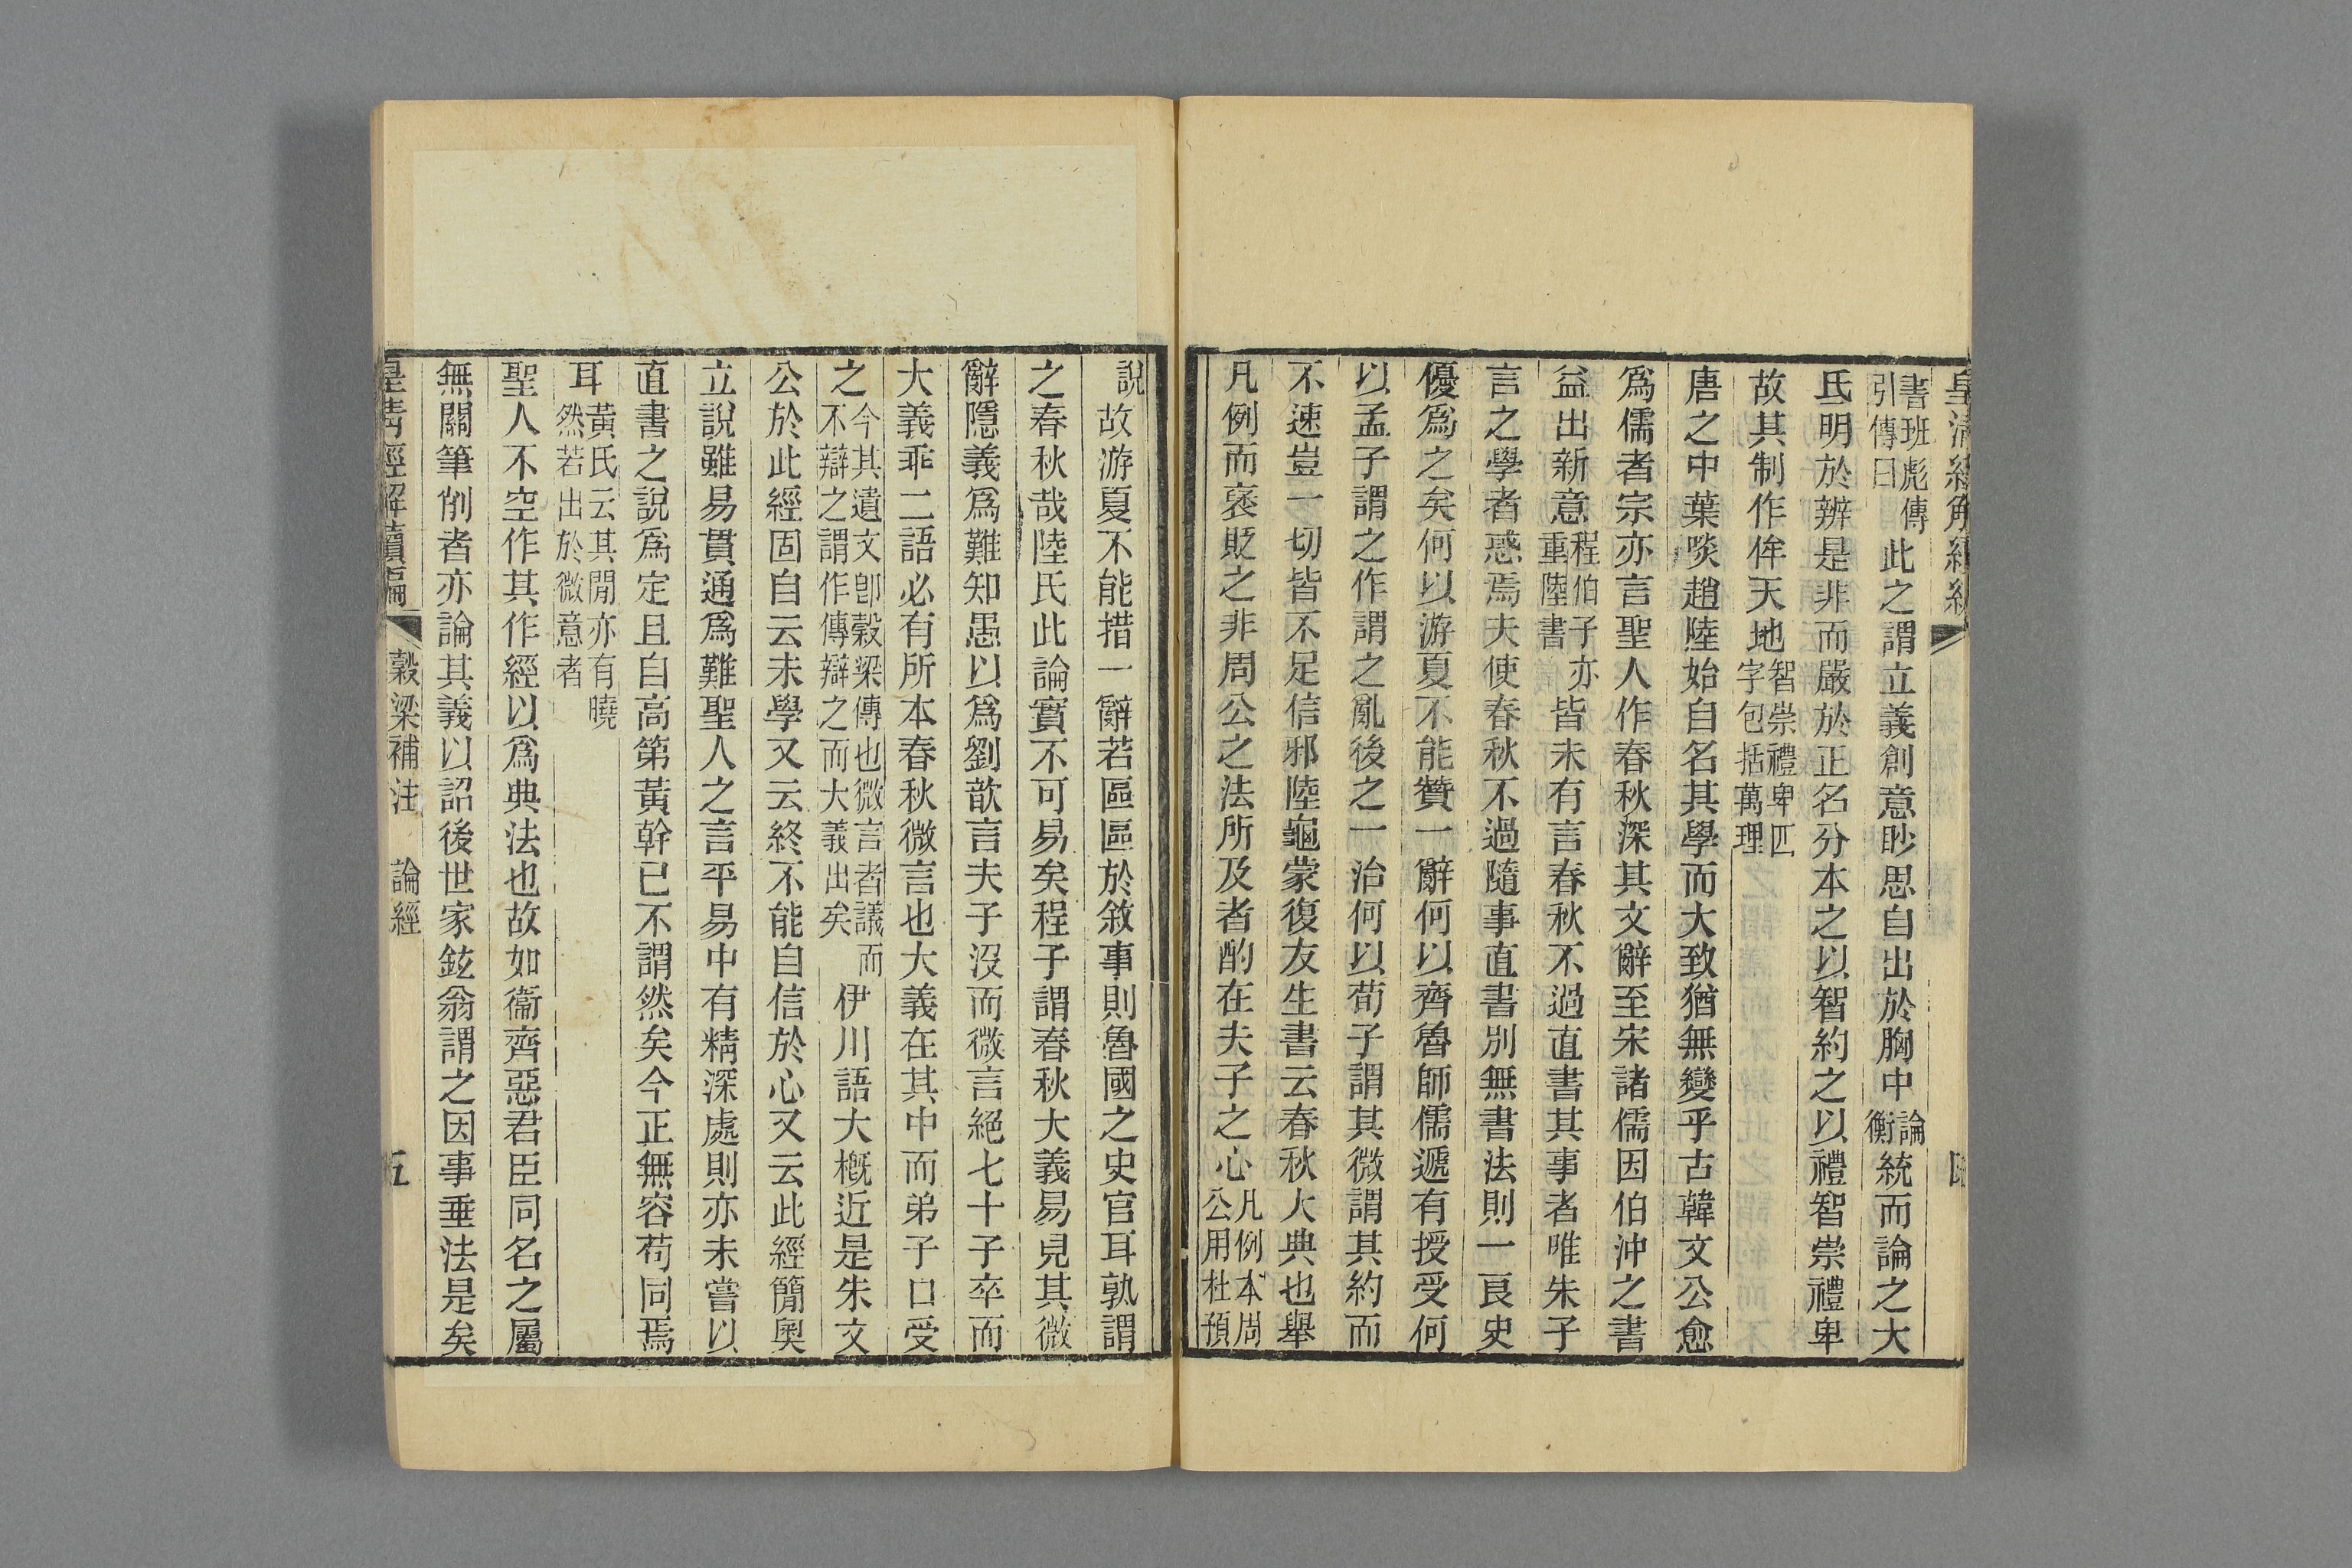 皇清經解續編
書班彪傳引傳曰此之謂立義創意眇思自出於胸中論衡統而論之大
氏明於辨是非而嚴於正名分本之以智約之以禮智崇禮卑
故其制作侔天地智崇禮卑匹字包括萬理
唐之中葉啖趙陸始自名其學而大致猶無變乎古韓文公愈
爲儒者宗亦言聖人作春秋深其文辭至宋諸儒因伯沖之書
益出新意程伯子亦重陸書皆未有言春秋不過直書其事者唯朱子
言之學者惑焉夫使春秋不過隨事直書別無書法則一良史
優爲之矣何以游夏不能贊一辭何以齊魯師儒遞有授受何
以孟子謂之作謂之亂後之一治何以荀子謂其微謂其約而
不速豈一切皆不足信邪陸龜蒙復友生書云春秋大典也舉
凡例而褒貶之非周公之法所及者酌在夫子之心凡例本周公用杜預
說故游夏不能措一辭若區區於敘事則魯國之史官耳孰謂
之春秋哉陸氏此論實不可易矣程子謂春秋大義易見其微
辭隱義爲難知愚以爲劉歆言夫子沒而微言絕七十子卒而
大義乖二語必有所本春秋微言也大義在其中而弟子口受
之今其遺文卽穀梁傳也微言者議而不辯之謂作傳辯之而大義出矣伊川語大槪近是朱文
公於此經固自云未學又云終不能自信於心又云此經簡奧
立說雖易貫通爲難聖人之言平易中有精深處則亦未嘗以
直書之說爲定且自高第黃幹已不謂然矣今正無容苟同焉
耳黃氏云其閒亦有曉然若出於微意者
聖人不空作其作經以爲典法也故如衞齊惡君臣同名之屬
無關筆削者亦論其義以詔後世家鉉翁謂之因事垂法是矣
皇清經解續編 穀梁補注 論經 五